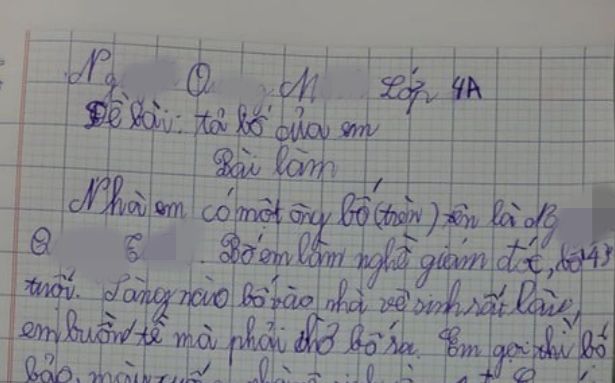 Ng Q M Lớp 4A
Đề bài: tả bố của em
Bài làm
Nhà em có một ông bố (trẻ) tên là
Q Bố em làm nghề giám đốc, bố 43
tuổi. Sáng nào bố vào nhà vệ sinh rất lâu,
em buồn tè mà phải chờ bố ra. Em gọi thì bố
bảo, mày